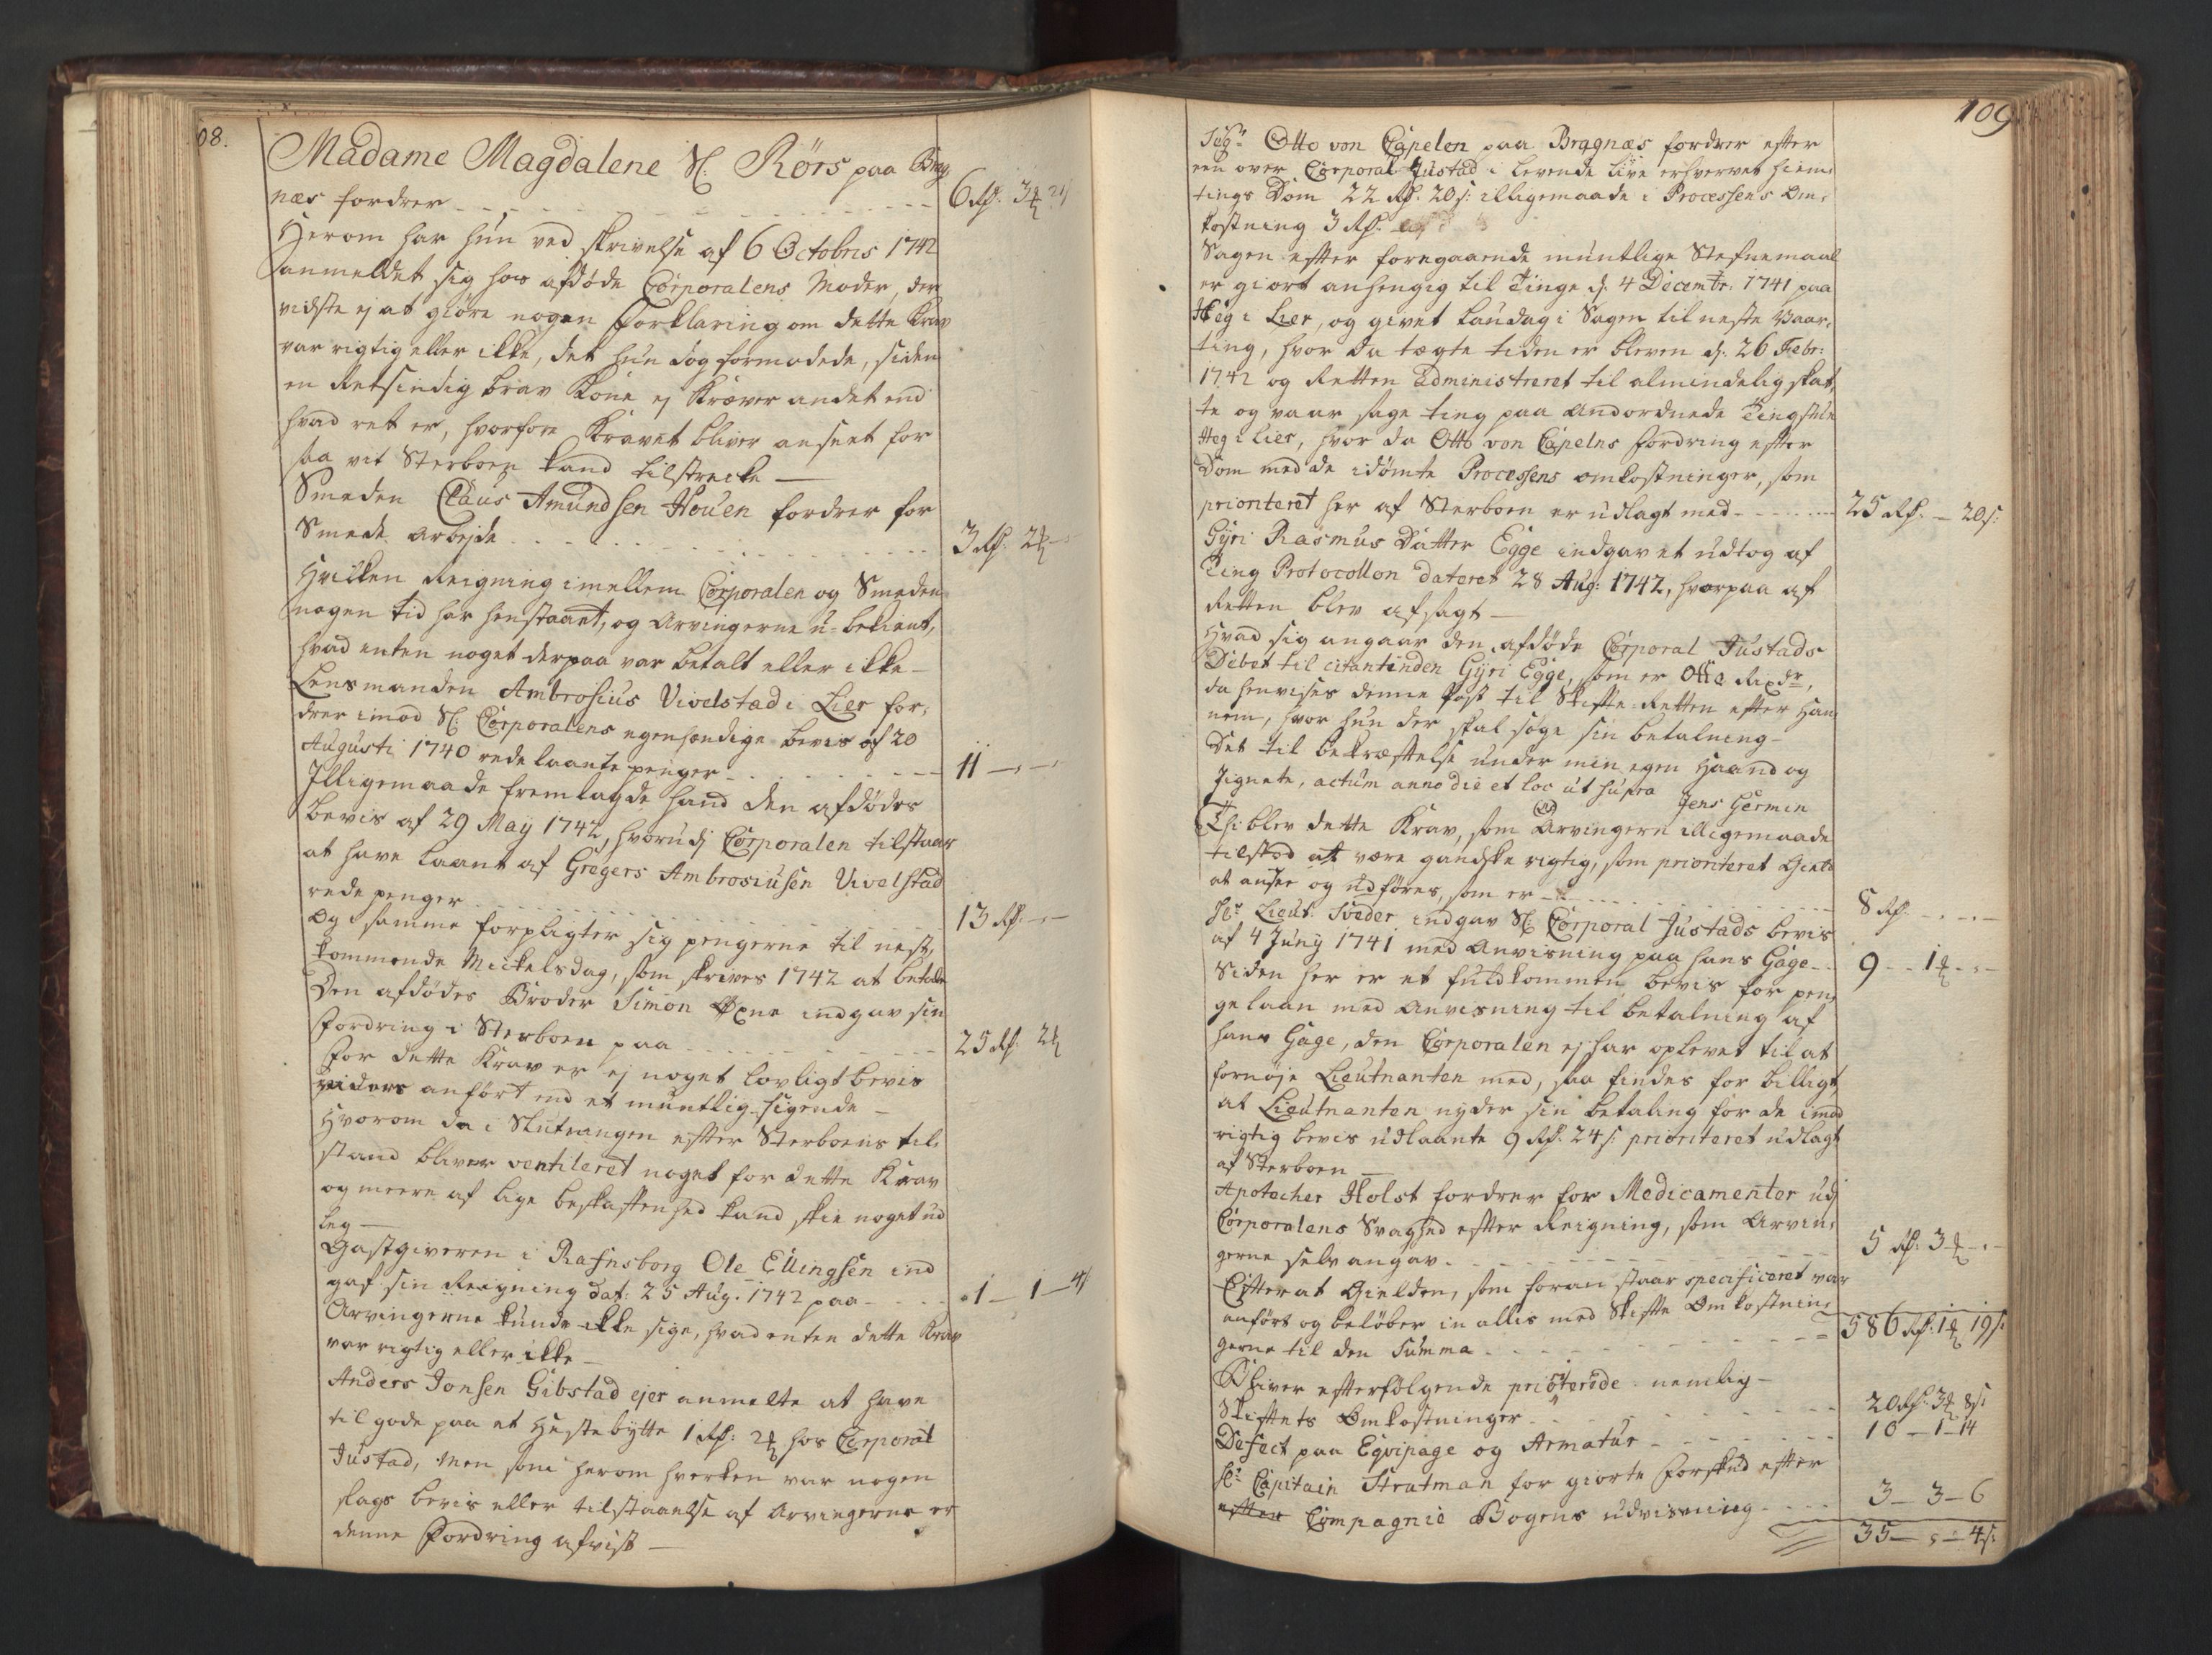 08.
Madame Magdalene Sl: Rörs paa Brag
næs fordrer 6 Rd: 3 ort 21
Herom har hun ved skrivelse af 6 Octobris 1742
anmeldet sig hos afdøde Corporalens Moder, der
vidste ej at giöre nogen forklaring om dette Krav
var rigtig eller ikke, det hun dog formodede, siden
en Retsindig brav Kone ej Kræver andet end
hvad ret er, hvorfore Kravet bliver anseet for
saa vit Sterboen kand tilstrecke —
Smeden Claus Amundsen Houen fordrer for
Smede Arbejde 3 Rd: 2 ort —
Hvilken Reigning imellem Corporalen og Smeden
nogen tid har henstaaet, og Arvingerne u-bekient,
hvad enten noget derpaa var betalt eller ikke —
Lensmanden Ambrosius Vivelstad i Lier for,
drer imod Sl: Corporalens egenhændige bevis af 20
Augusti 1740 rede laante penger 11 — " —
Illigemaade fremlagde hand den afdødes
bevis af 29 Maÿ 1742, hvorudj Corporalen tilstaar
at have laant af Gregers Ambrosiusen Vivelstad
rede penger 13 Rd: — " —
Og i samme forpligter sig pengerne til nest,
kommende Mickelsdag, som skrives 1742 at betale
Den afdödes Broder Simon Oxne indgav sin
Fordring i Sterboen paa 25 Rd: 2 ort
For dette Krav er ej noget lovligt bevis
videre anfört end et muntlig sigende —
Hvorom da i Slutningen efter Sterboens til,
stand bliver ventileret noget for dette Krav
og meere af lige beskaffenhed kand skie noget ud
leg —
Gastgiveren i Rafnsborg Ole Ellingsen ind
gaf sin Reigning dat: 25 Aug: 1742 paa 1 — 1 — 4
Arvingerne kunde ikke sige, hvad enten dette Krav
var rigtig eller ikke —
Anders Jonsen Gibstad ejer anmelte at have
til gode paa et Hestebytte 1 Rd: 2 ort hos Corporal
Justad, Men som herom hverken var nogen
slags bevis eller tilstaaelse af Arvingerne er
denne Fordring afvist —
109
Sigr Otto von Capelen paa Bragnæs fordrer efter
een over Corporal Justad i levende live erhvervet hiem,
tings Dom 22 Rd: 20 s: illigemaade i Processens Om,
kostning 3 Rd:
Sagen efter foregaaende muntlige Stefnemaal
er giort anhengig til Tinge d. 4 Decembr: 1741 paa
Heg i Lier, og givet laudag i Sagen til neste Vaar,
ting, hvor da tægte tiden er bleven d. 26 Febr:
1742 og Retten administreret til almindelig skat,
te og vaar sage ting paa Anordnede Tingstue
Heg i Lier, hvor da Otto von Capelns fordring efter
Dom med de idömte Processens omkostninger, som
prioriteret her af Sterboen er udlagt med 25 Rd: — 20 s:
Gyri Rasmus Datter Egge indgav et udtog af
Ting Protocollen dateret 28 Aug: 1742, hvorpaa af
Retten blev afsagt —
Hvad sig angaar den afdöde Corporal Justads
Debet til citantinden Gyri Egge, som er Otte Rixdr,
da henvises denne Post til Skifte-Retten efter Han
nem, hvor hun der skal söge sin betalning —
Det til bekræftelse under min egen Haand og
Signete, actum anno die et loc ut supra Jens Germin
Thi blev dette Krav, som Arvingerne illigemaade
tilstod at være gandske rigtig, som prioriteret Gield
at ansee og udföres, som er 8 Rd: — " —
Hr Lieut: Sveder indgav Sl: Corporal Justads bevis
af 4 Juny 1741 med Anvisning paa hans Gage 9 — 1 ort — " —
Siden her er et fuldkommen bevis for pen,
gelaan med Anvisning til betalning af
hans Gage, den Corporalen ej har oplevet til at
fornöje Lieutnanten med, saa findes for billigt,
at Lieutnanten nyder sin betaling for de imod
rigtig bevis udlaante 9 Rd: 24 s: prioriteret udlagt
af Sterboen —
Apotecher Holst fordrer for Medicamenter udj
Corporalens Svaghed efter Reigning, som Arvin,
gerne selv angav 5 Rd: 3 ort — " —
Efterat Gielden, som foran staar specificeret var
anfört og belöber in allis med Skifte Omkostnin,
gerne til den Summa 586 Rd: 1 ort 19 s:
Bliver efterfölgende prioterede nemlig —
Skiftets Omkostninger 20 Rd: 3 ort 8 s:
Defect paa Eqvipage og Armatur 10 — 1 — 14
Hr Capitain Stratman for giorte Forskud efter
efter Compagnie Bogens udvisning 3 — 3 — 6
35 — " — 4 s: